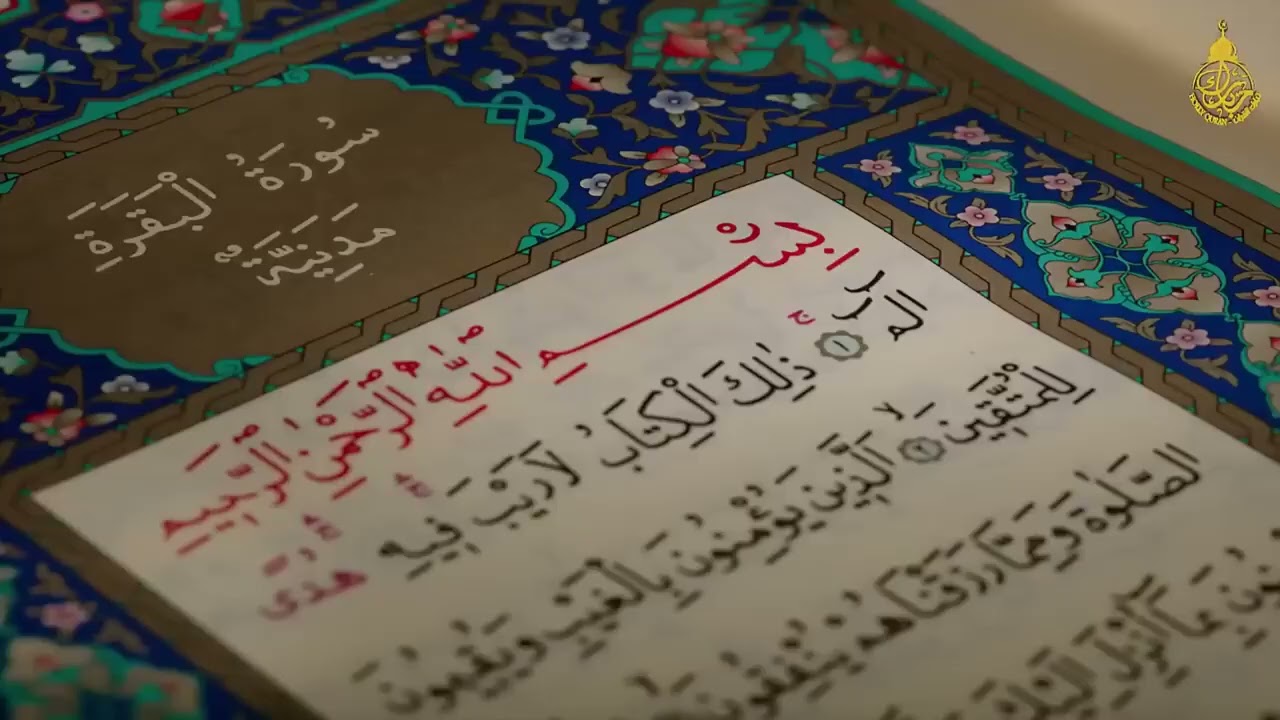 سُورَةُ الْبَقَرَةِ
مَدَنِيَّةٌ
بِسْمِ اللَّهِ الرَّحْمَٰنِ الرَّحِيمِ
الٓمٓ ۝١ ذَٰلِكَ الْكِتَابُ لَا رَيْبَ ۛ فِيهِ ۛ هُدًى
لِلْمُتَّقِينَ ۙ ۝٢ الَّذِينَ يُؤْمِنُونَ بِالْغَيْبِ وَيُقِيمُونَ
الصَّلَوٰةَ وَمِمَّا رَزَقْنَاهُمْ يُنْفِقُونَ
بِمَا أُنْزِلَ إِلَيْكَ
HOLY QURAN